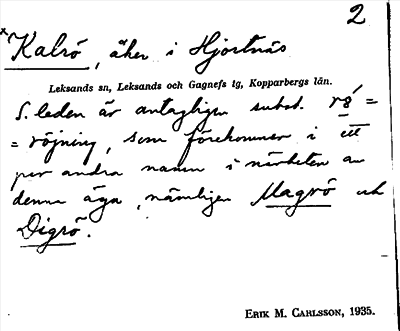 2
x Kalrö, åker i Hjortnäs
Leksands sn, Leksands och Gagnefs tg, Kopparbergs län.
S. leden är antagligen subst. rö =
= röjning, som förekommer i ett
par andra namn i närheten av
denna äga, nämligen Magrö och
Digrö.
ERIK M. CARLSSON, 1935.